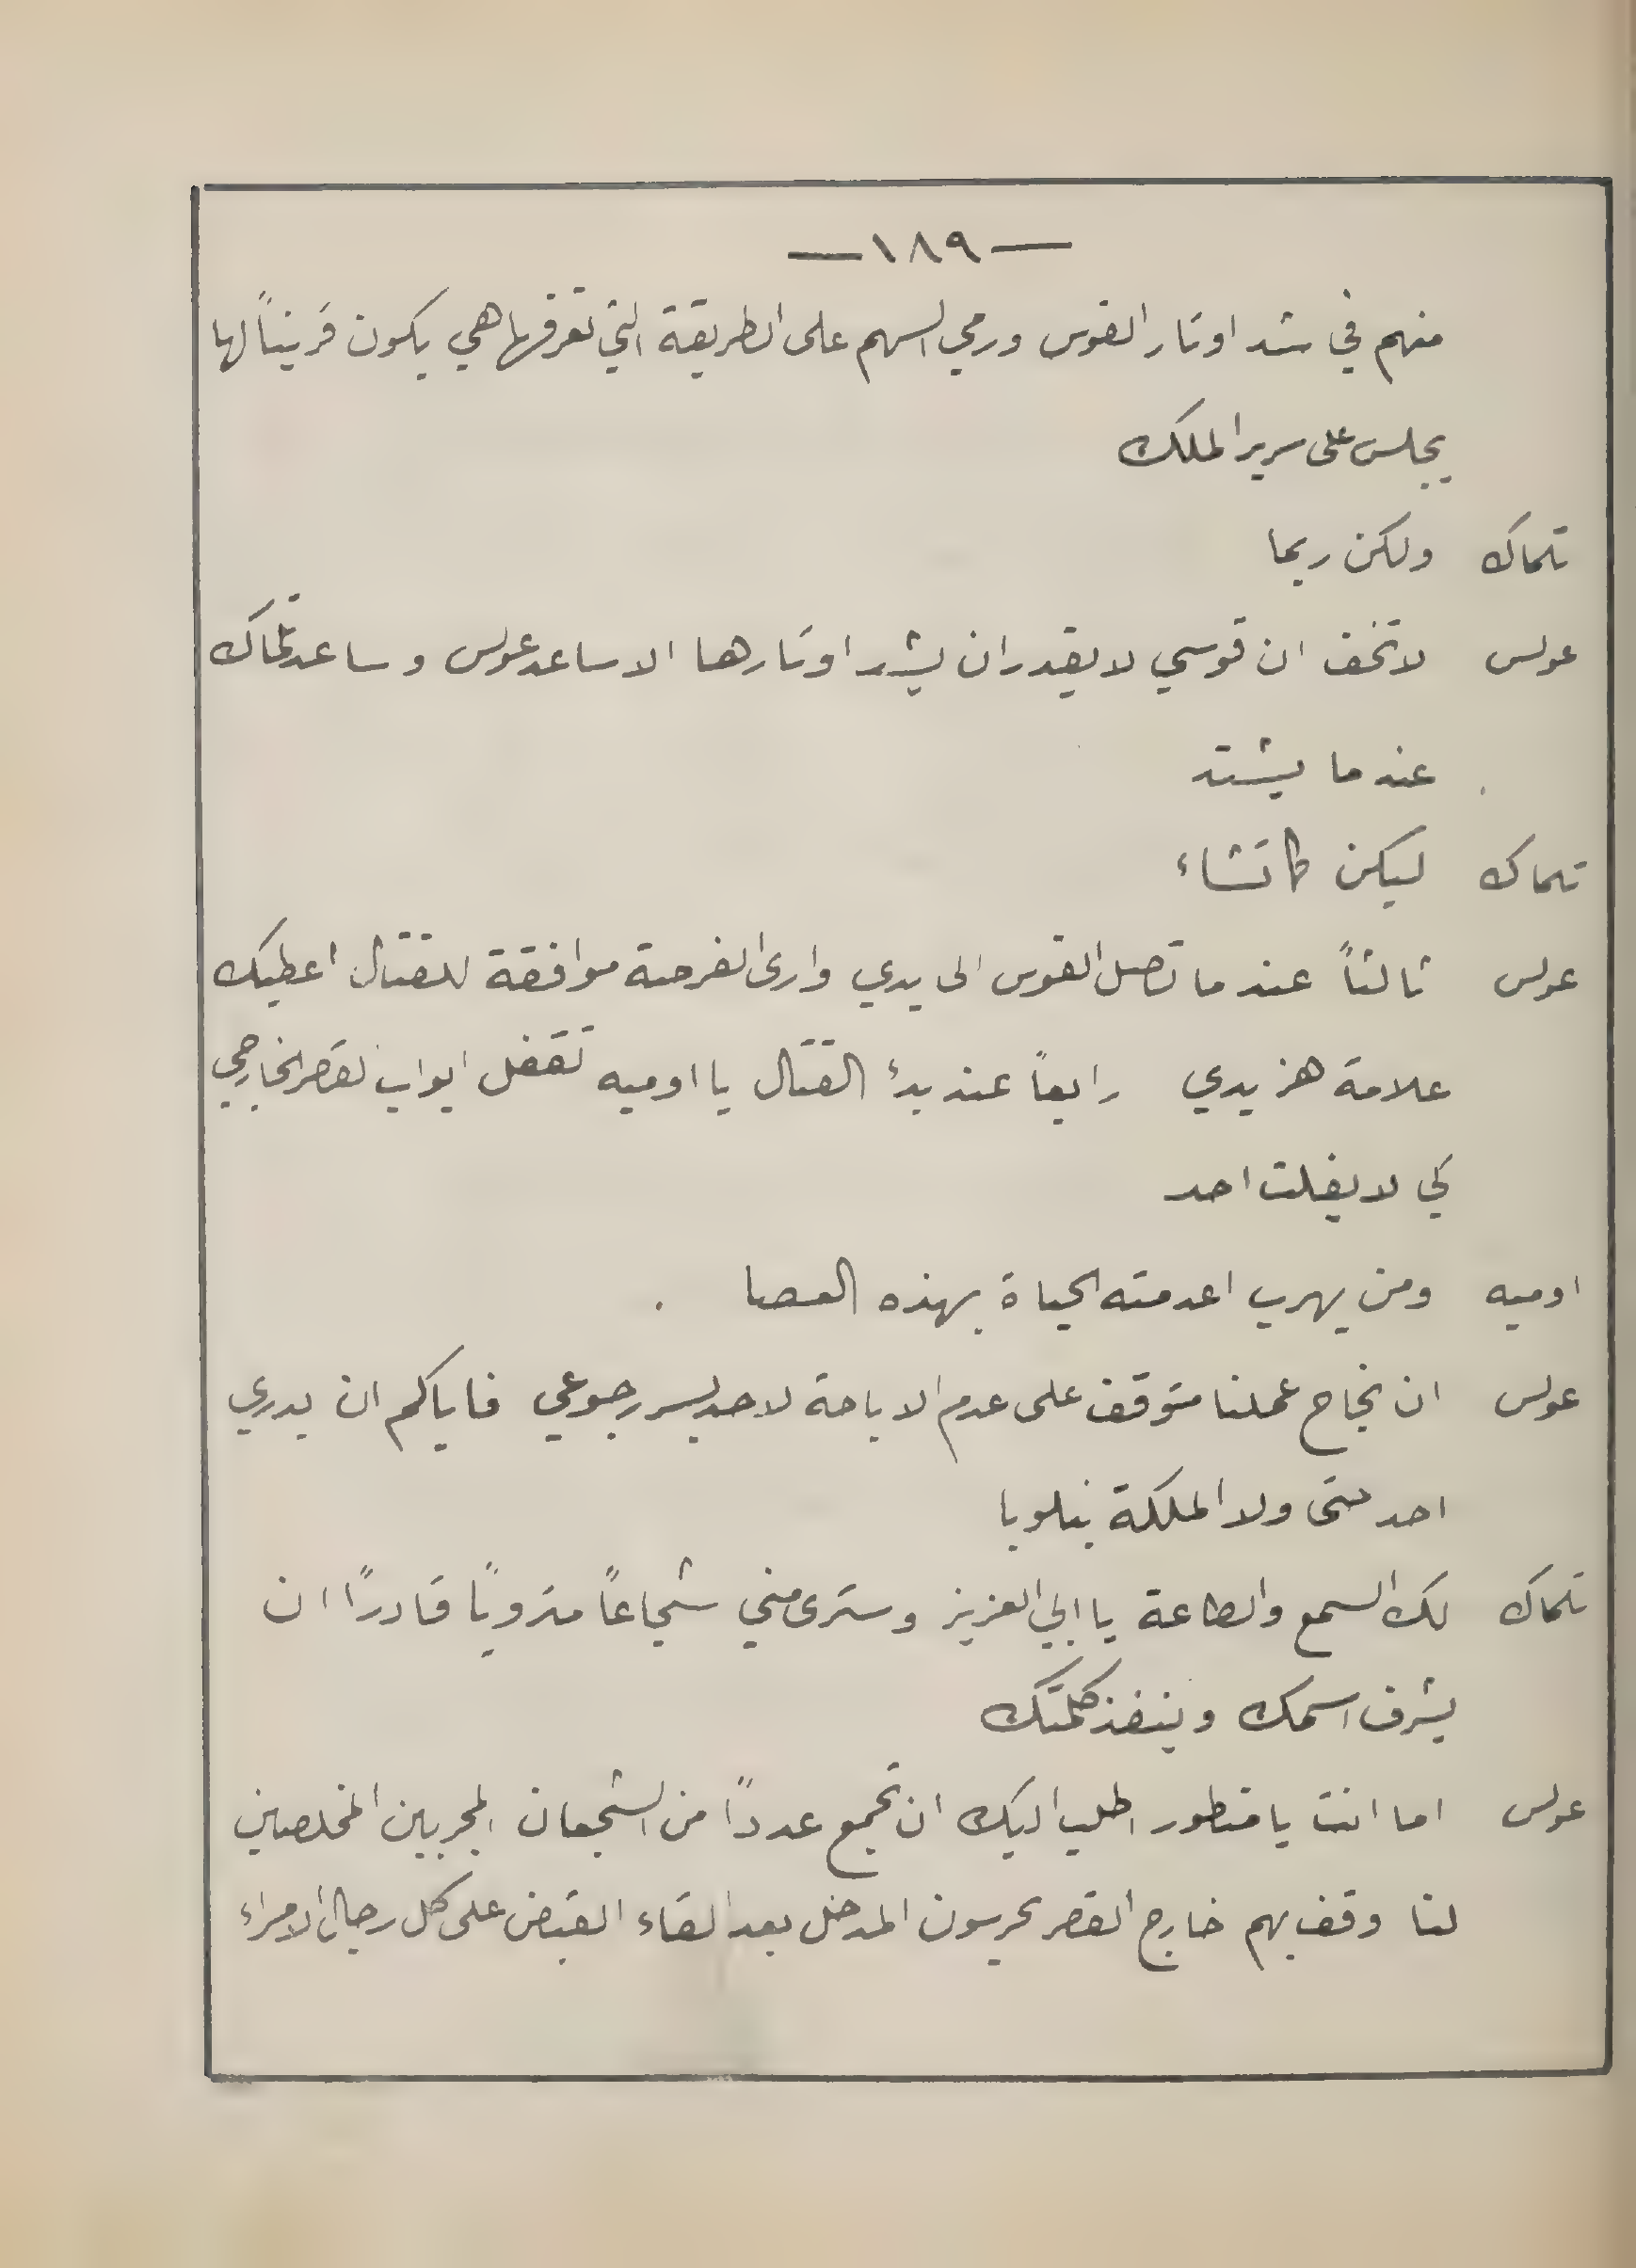 — ١٨٩ —
منهم في شد اوتار القوس ورمي السهم على الطريقة التي تعرفها هي يكون قريناً لها
يجلس على سرير الملك
تلماك ولكن ربما
عولس لا تخف ان قوسي لا يقدر ان يشد اوتارها الا ساعد عولس وساعد تلماك
عندما يشتد
تلماك ليكن كما تشاء
عولس ثالثاً عندما تصل القوس الى يدي وارى الفرصة موافقة للقتال اعطيك
علامة هز يدي رابعاً عند بدئ القتال يا اوميه تقفل ابواب القصر الخارجي
كي لا يفلت احد
اوميه ومن يهرب اعدمته الحياة بهذه العصا
عولس ان نجاح عملنا متوقف على عدم الاباحة لاحد بسر رجوعي فاياكم ان يدري
احد حتى ولا الملكة بنلوبا
تلماك لك السمع والطاعة يا ابي العزيز وسترى مني شجاعاً متروياً قادراً ان
يشرف اسمك وينفذ كلمتك
عولس اما انت يا منطور اطلب اليك ان تجمع عدداً من الشجعان المجربين المخلصين
لنا وقف بهم خارج القصر يحرسون المدخل بعد القاء القبض على كل رجال الامراء